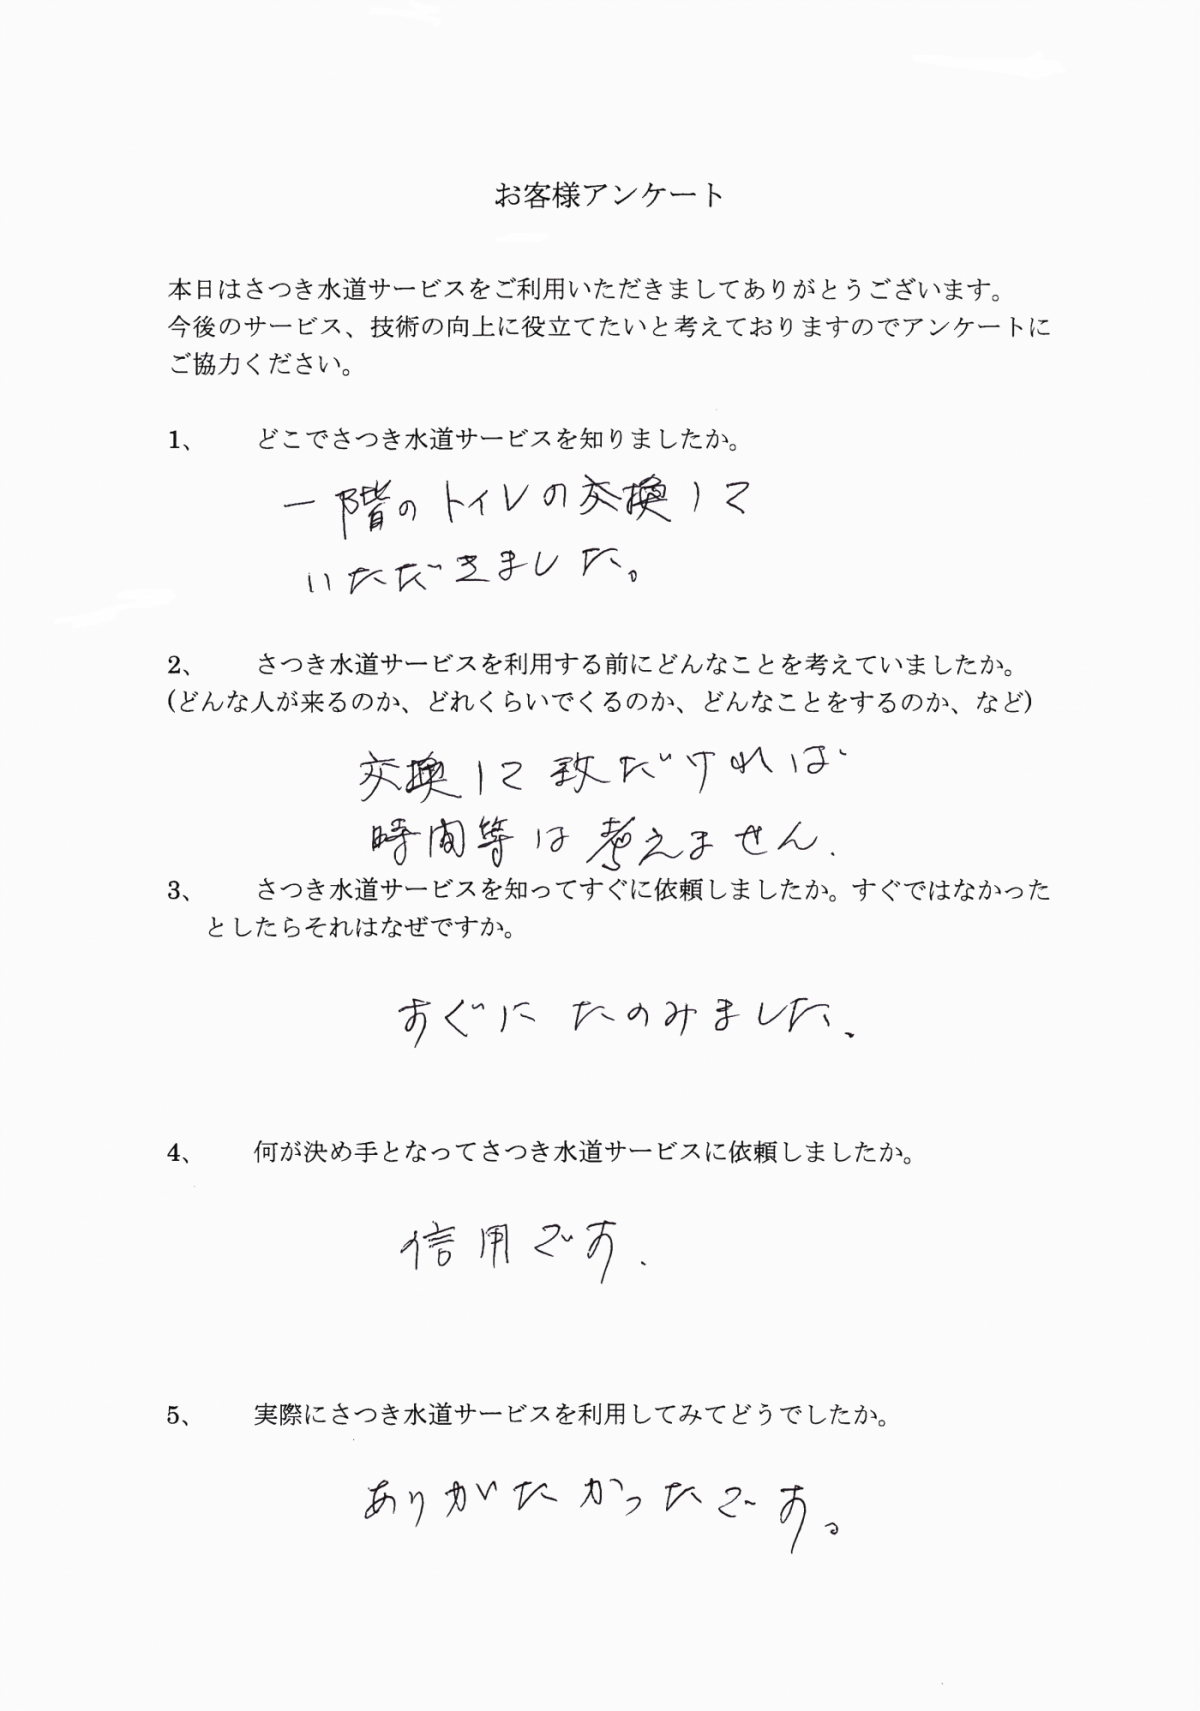 お客様アンケート
本日はさつき水道サービスをご利用いただきましてありがとうございます。
今後のサービス、技術の向上に役立てたいと考えておりますのでアンケートに
ご協力ください。
1、 どこでさつき水道サービスを知りましたか。
一階のトイレの交換して
いただきました。
2、 さつき水道サービスを利用する前にどんなことを考えていましたか。
(どんな人が来るのか、どれくらいでくるのか、どんなことをするのか、など)
交換して致だければ
時間等は考えません.
3、 さつき水道サービスを知ってすぐに依頼しましたか。すぐではなかった
としたらそれはなぜですか。
すぐに たのみました、
4、 何が決め手となってさつき水道サービスに依頼しましたか。
信用です.
5、 実際にさつき水道サービスを利用してみてどうでしたか。
ありがたかったです。